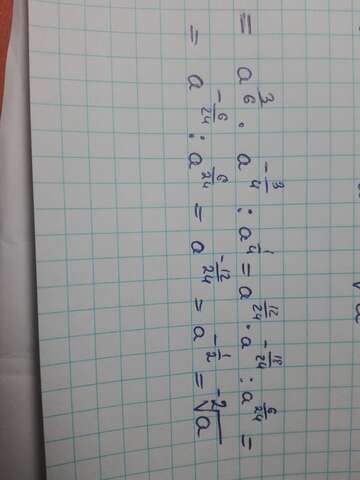 = a^(3/6) · a^(-3/4) : a^(1/4) = a^(12/24) · a^(-18/24) : a^(6/24) =
= a^(-6/24) : a^(6/24) = a^(-12/24) = a^(-1/2) = ⁻²√a